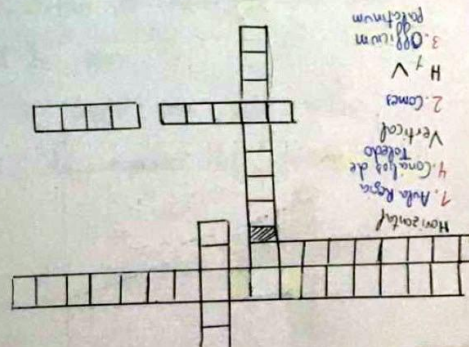 Horizontal
1. Aula Regia
4. Concilios de
Toledo
Vertical
2. Comes
3. Officium
palatinum